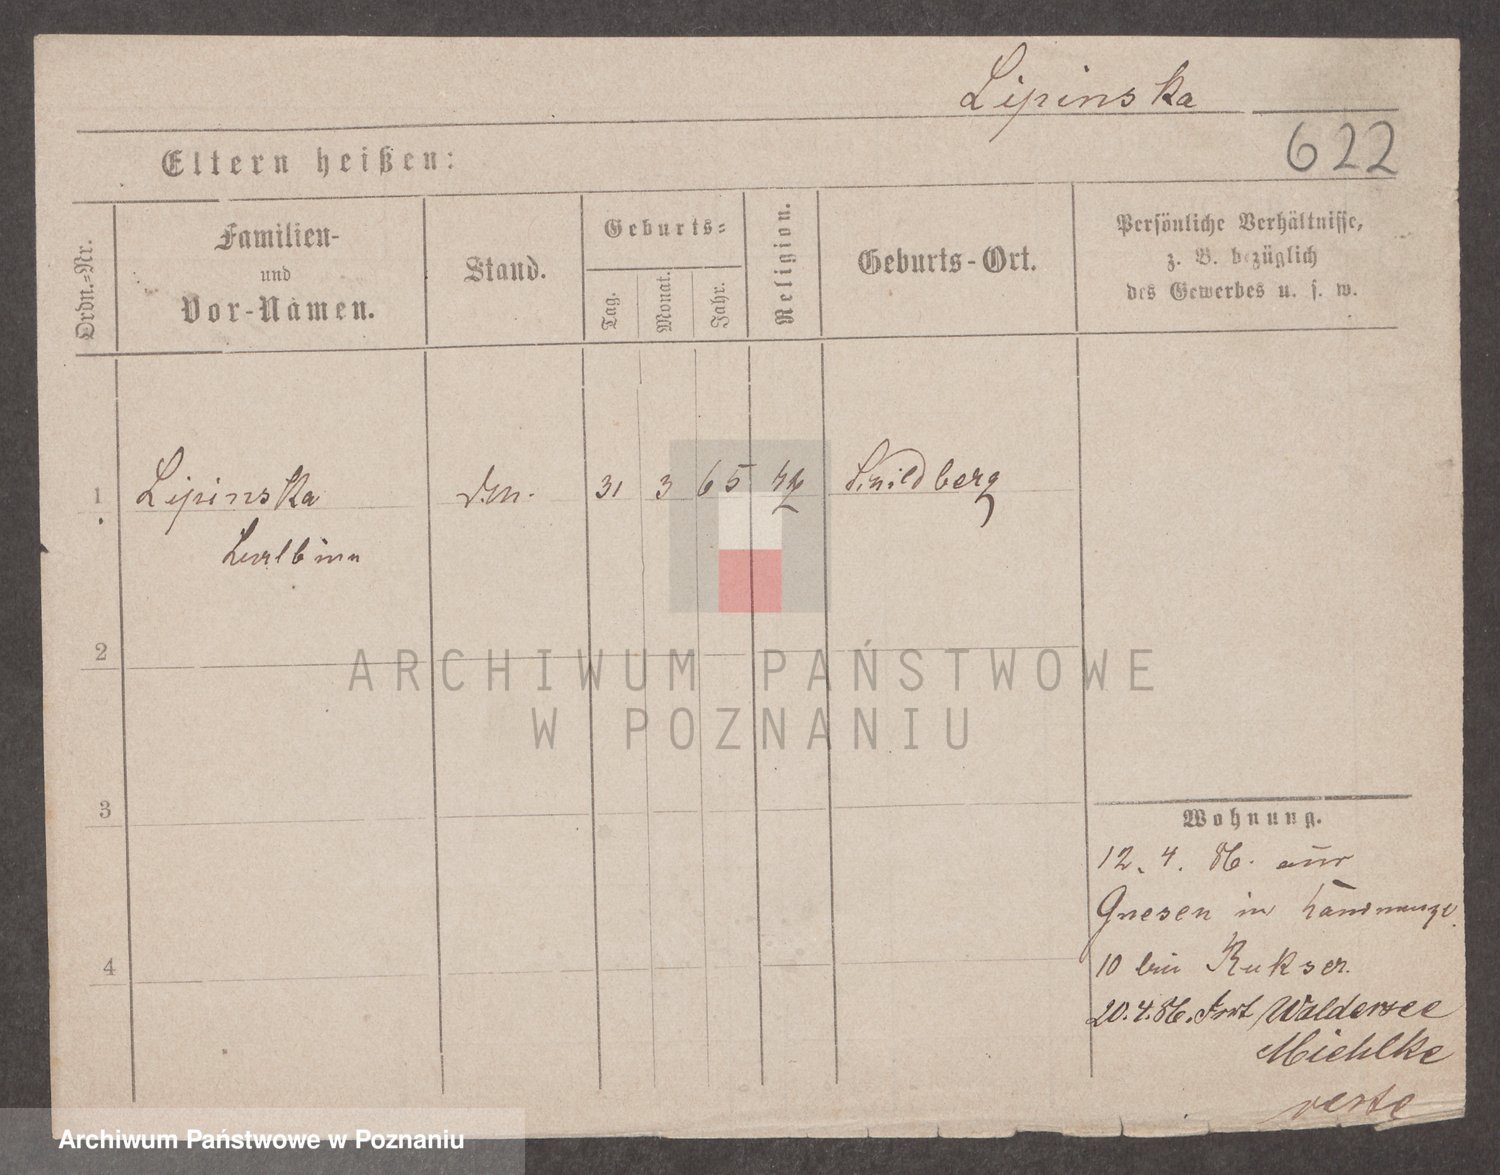 Lipinska
622
Eltern heißen:
Ordn.-Nr.
Familien-
und
Vor-Namen.
Stand.
Geburts-
Tag.
Monat.
Jahr.
Religion.
Geburts-Ort.
Persönliche Verhältnisse,
z. B. bezüglich
des Gewerbes u. s. w.
1 Lipinska 31 3 65 Schildberg
2
ARCHIWUM PAŃSTWOWE
W POZNANIU
3
Wohnung.
12. 4. 86. aus
Gnesen in
4
10 bei Rukser.
20.4.86. Fort Waldersee
Miehlke
Archiwum Państwowe w Poznaniu